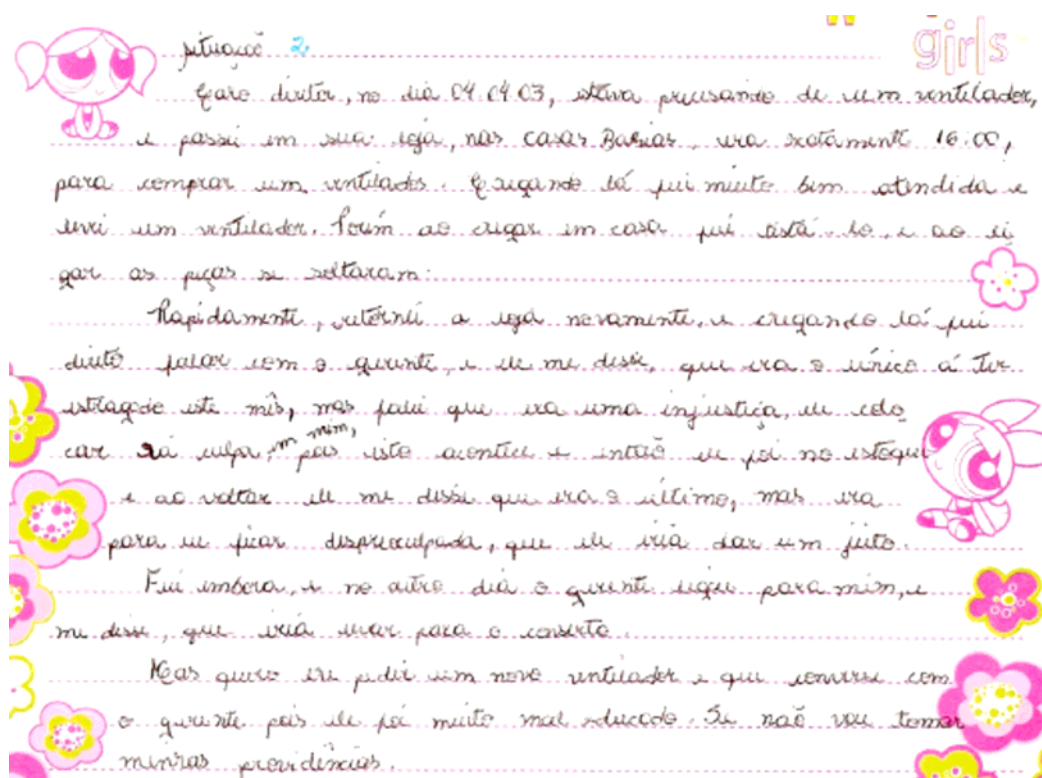 girls
situação 2
Caro diretor, no dia 04.04.03, estava precisando de um ventilador,
e passei em sua loja, nas casas Bahias, era exatamente 16:00,
para comprar um ventilador. Chegando lá fui muito bem atendida e
levei um ventilador. Porém ao chegar em casa fui testá-lo, e ao li
gar as peças se soltaram.
Rapidamente, retornei a loja novamente, e chegando lá fui
direto falar com o gerente, e ele me disse, que era o único á ter
estragado este mês, mas falei que era uma injustiça, ele colo
car a culpa, em mim, pois isto acontece e então ele foi no estoque
e ao voltar ele me disse que era o último, mas era
para eu ficar despreoculpada, que ele iria dar um jeito.
Fui embora, e no outro dia o gerente ligou para mim, e
me disse, que iria levar para o conserto.
Mas quero lhe pedir um novo ventilador e que converse com
o gerente pois ele foi muito mal educado. Se não vou tomar
minhas providências.